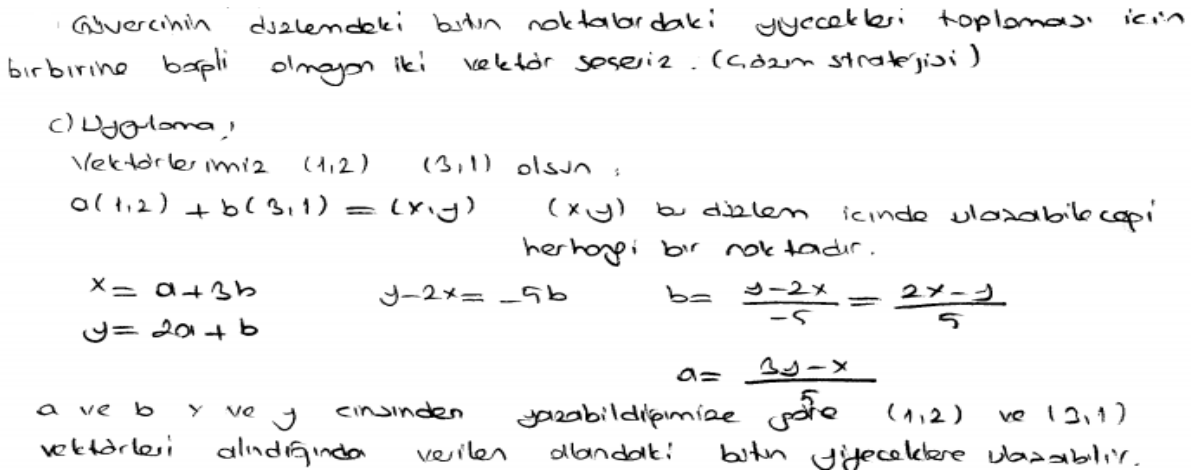 Güvercinin düzlemdeki bütün noktalardaki yiyecekleri toplaması için
birbirine bağlı olmayan iki vektör seçeriz. (Çözüm stratejisi)
c) Uygulama;
Vektörlerimiz (1,2) (3,1) olsun;
a(1,2) + b(3,1) = (x,y) (x,y) bu düzlem içinde ulaşabileceği
herhangi bir noktadır.
x = a+3b y-2x = -5b b = \frac{y-2x}{-5} = \frac{2x-y}{5}
y = 2a+b
a = \frac{3y-x}{5}
a ve b x ve y cinsinden yazabildiğimize göre (1,2) ve (3,1)
vektörleri alındığında verilen alandaki bütün yiyeceklere ulaşabilir.